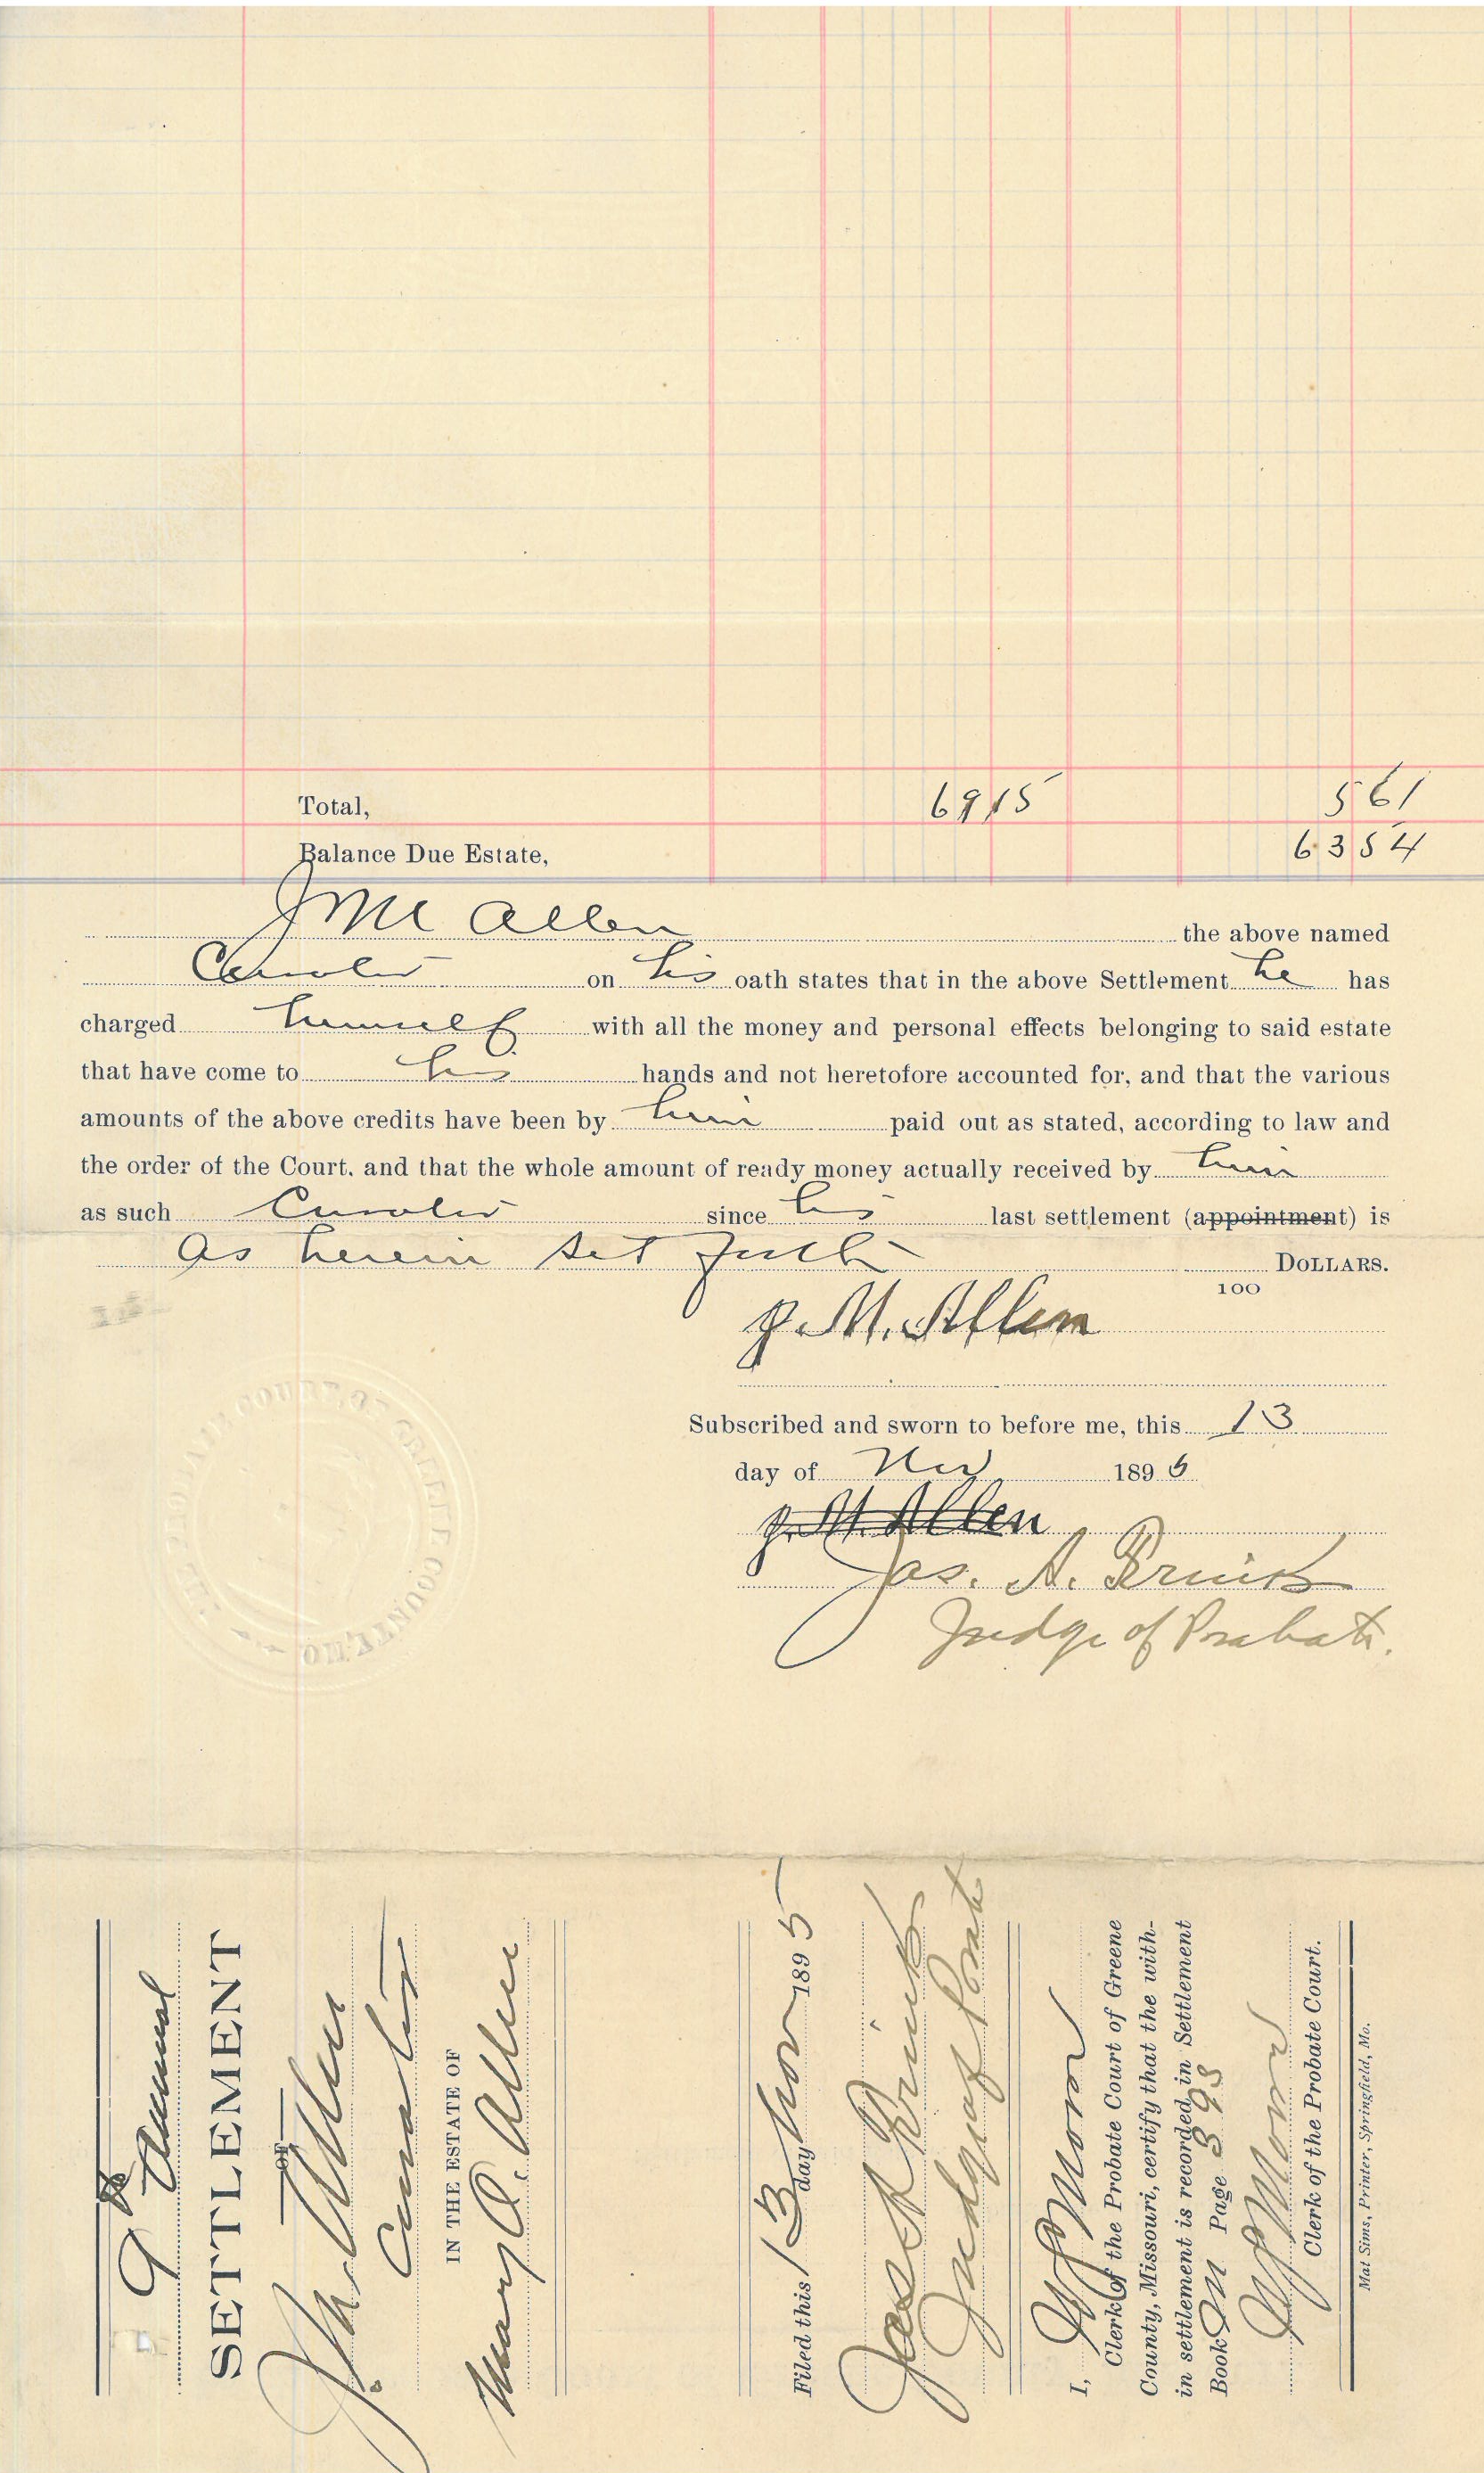 Total, 6915 561
Balance Due Estate, 6354
J M Allen the above named
Curator on his oath states that in the above Settlement he has
charged himself with all the money and personal effects belonging to said estate
that have come to his hands and not heretofore accounted for, and that the various
amounts of the above credits have been by him paid out as stated, according to law and
the order of the Court, and that the whole amount of ready money actually received by him
as such Curator since his last settlement (appointment) is
as herein set forth DOLLARS.
100
J. M. Allen
Subscribed and sworn to before me, this 13
day of Nov 1895
J. M. Allen
Jas. A.
Judge of Probate.
PROBATE COURT OF GREENE COUNTY, MO.
9 Annual
SETTLEMENT
OF
J. M. Allen
Curator
IN THE ESTATE OF
Mary A. Allen
Filed this 13 day Nov 1895
Jas A
Judge of Probate
I,
Clerk of the Probate Court of Greene
County, Missouri, certify that the with-
in settlement is recorded in Settlement
Book M Page 393
Clerk of the Probate Court.
Mat Sims, Printer, Springfield, Mo.